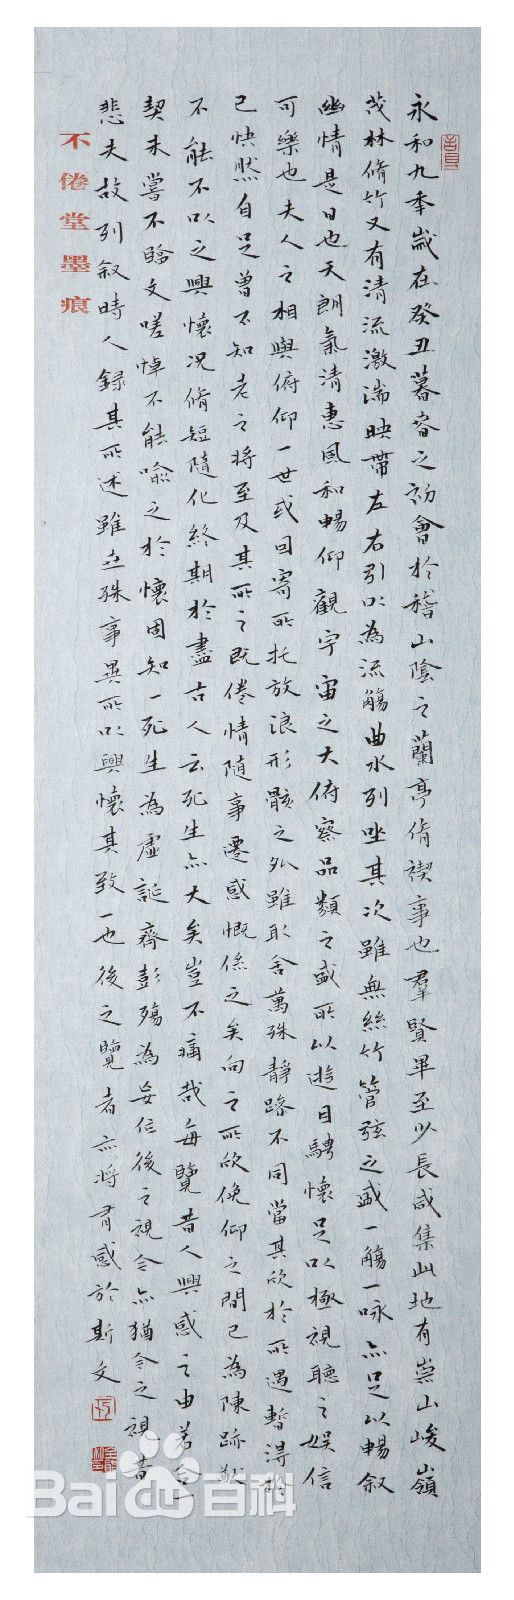 永和九秊歲在癸丑暮春之初會於稽山陰之蘭亭脩禊事也羣賢畢至少長咸集此地有崇山峻嶺
茂林脩竹又有清流激湍映帶左右引以為流觴曲水列坐其次雖無絲竹管弦之盛一觴一詠亦足以暢叙
幽情是日也天朗氣清惠風和暢仰觀宇宙之大俯察品類之盛所以遊目騁懷足以極視聽之娛信
可樂也夫人之相與俯仰一世或因寄所托放浪形骸之外雖取舍萬殊靜躁不同當其欣於所遇暫得於
己快然自足曾不知老之將至及其所之既倦情隨事遷感慨係之矣向之所欣俛仰之間已為陳跡猶
不能不以之興懷況脩短隨化終期於盡古人云死生亦大矣豈不痛哉每覽昔人興感之由若合一
契未嘗不臨文嗟悼不能喻之於懷固知一死生為虛誕齊彭殤為妄作後之視今亦猶今之視昔
悲夫故列叙時人錄其所述雖世殊事異所以興懷其致一也後之覽者亦將有感於斯文
不倦堂墨痕
Baidu百科